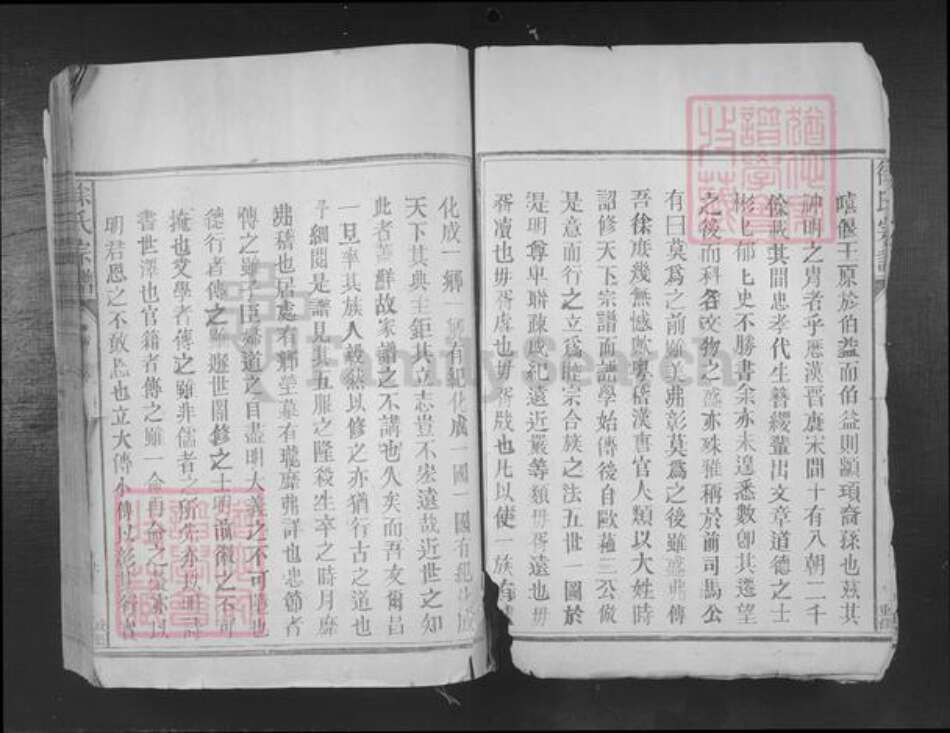 嘻偃王原於伯益而伯益則顓頊裔孫也茲其
神明之胄者乎歷漢晉唐宋間十有八朝二千
餘載其間忠孝代生簪纓輩出文章道德之士
彬彬郁郁史不勝書余亦未遑悉數卽其遷望
之後而科名文物之盛亦殊雅稱於前司馬公
有曰莫爲之前雖美弗彰莫爲之後雖盛弗傳
吾徐庶幾無憾歟嘗稽漢書官人類以大姓時
詔修天下宗譜而譜學始傳後自歐蘇三公倣
是意而行之立爲睦宗合族之法五世一圖於
是明尊卑聯疎戚紀遠近嚴等類毋胥遠也毋
胥瀆也毋胥虐也毋胥戕也凡以使一族有
化成一鄉一鄉有紀化成一國一國有紀化成
天下其典至鉅其立志豈不宏遠哉近世之知
此者葢鮮故家譜之不講也久矣而吾友爾昌
一旦率其族人毅然以修之亦猶行古之道也
予細閱是譜見其五服之隆殺生卒之時月靡
弗稽也居處有鄉塋墓有隴靡弗詳也忠節者
傳之雖子臣婦道之目盡明大義之不可 也
德行者傳之雖遯世闇修之士明前徽之不可
掩也文學者傳之雖非儒者之所先亦以明詩
書世澤也官籍者傳之雖一命再命之 亦以
明君恩之不敢忘也立大傳小傳以彰其行者
徐氏宗譜
徐氏宗譜
FamilySearch